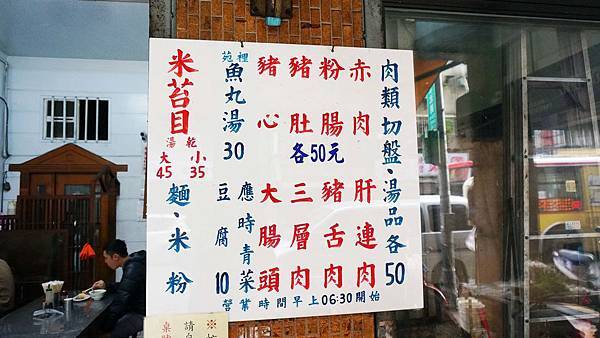 肉類切盤、湯品各50
赤肉
粉腸
豬肚
豬心
各50元
肝連肉
豬舌肉
三層肉
大腸頭
苑裡
魚丸湯30
應時青菜
豆腐10
米苔目
湯 乾
大 小
45 35
麵、米粉
營業時間早上06:30開始